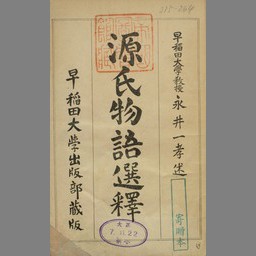 早稲田大學教授 永井一孝述
源氏物語選釋
早稲田大學出版部藏版
寄贈本
大正
7.11.22